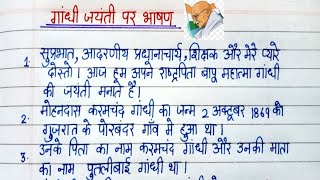 गांधी जयंती पर भाषण
1. सुप्रभात, आदरणीय प्रधानाचार्य, शिक्षक और मेरे प्यारे
दोस्तो। आज हम अपने राष्ट्रपिता बापू महात्मा गांधी
की जयंती मनाते हैं।
2. मोहनदास करमचंद गांधी का जन्म 2 अक्टूबर 1869 को
गुजरात के पोरबंदर गाँव मे हुआ था।
3. उनके पिता का नाम करमचंद गांधी और उनकी माता
का नाम पुतलीबाई गांधी था।